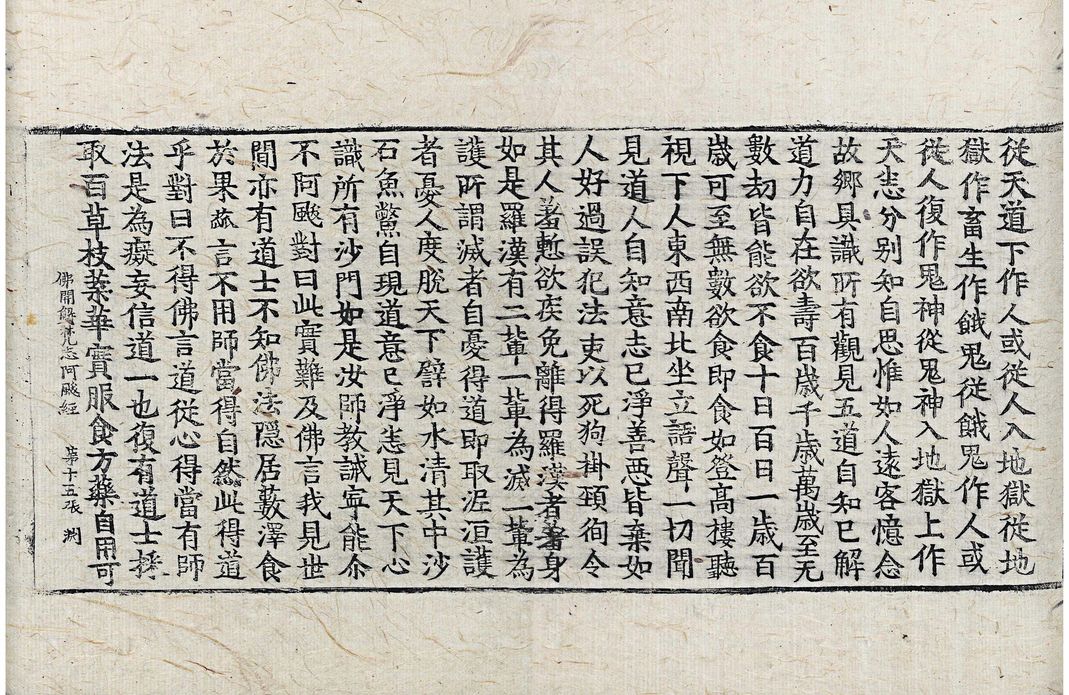 從天道下作人或從人入地獄從地
獄作畜生作餓鬼從餓鬼作人或
從人復作鬼神從鬼神入地獄上作
天悉分別知自思惟如人遠客憶念
故鄉具識所有觀見五道自知已解
道力自在欲壽百歲千歲萬歲至无
數劫皆能欲不食十日百日一歲百
歲可至無數欲食即食如登高樓聽
視下人東西南北坐立語聲一切聞
見道人自知意志已淨善惡皆棄如
人好過誤犯法吏以死狗掛頚徇令
其人羞慙欲疾免離得羅漢者羞身
如是羅漢有二輩一輩為滅一輩為
護所謂滅者自憂得道即取泥洹護
者憂人度脫天下譬如水清其中沙
石魚鱉自現道意已淨悉見天下心
識所有沙門如是汝師教誡寧能尒
不阿颰對曰此實難及佛言我見世
間亦有道士不知佛法隱居藪澤食
於果蓏言不用師當得自然此得道
乎對曰不得佛言道從心得當有師
法是為癡妄信道一也復有道士採
取百草枝葉華實服食方藥自用可
佛開解梵志阿颰經 第十五張 渕